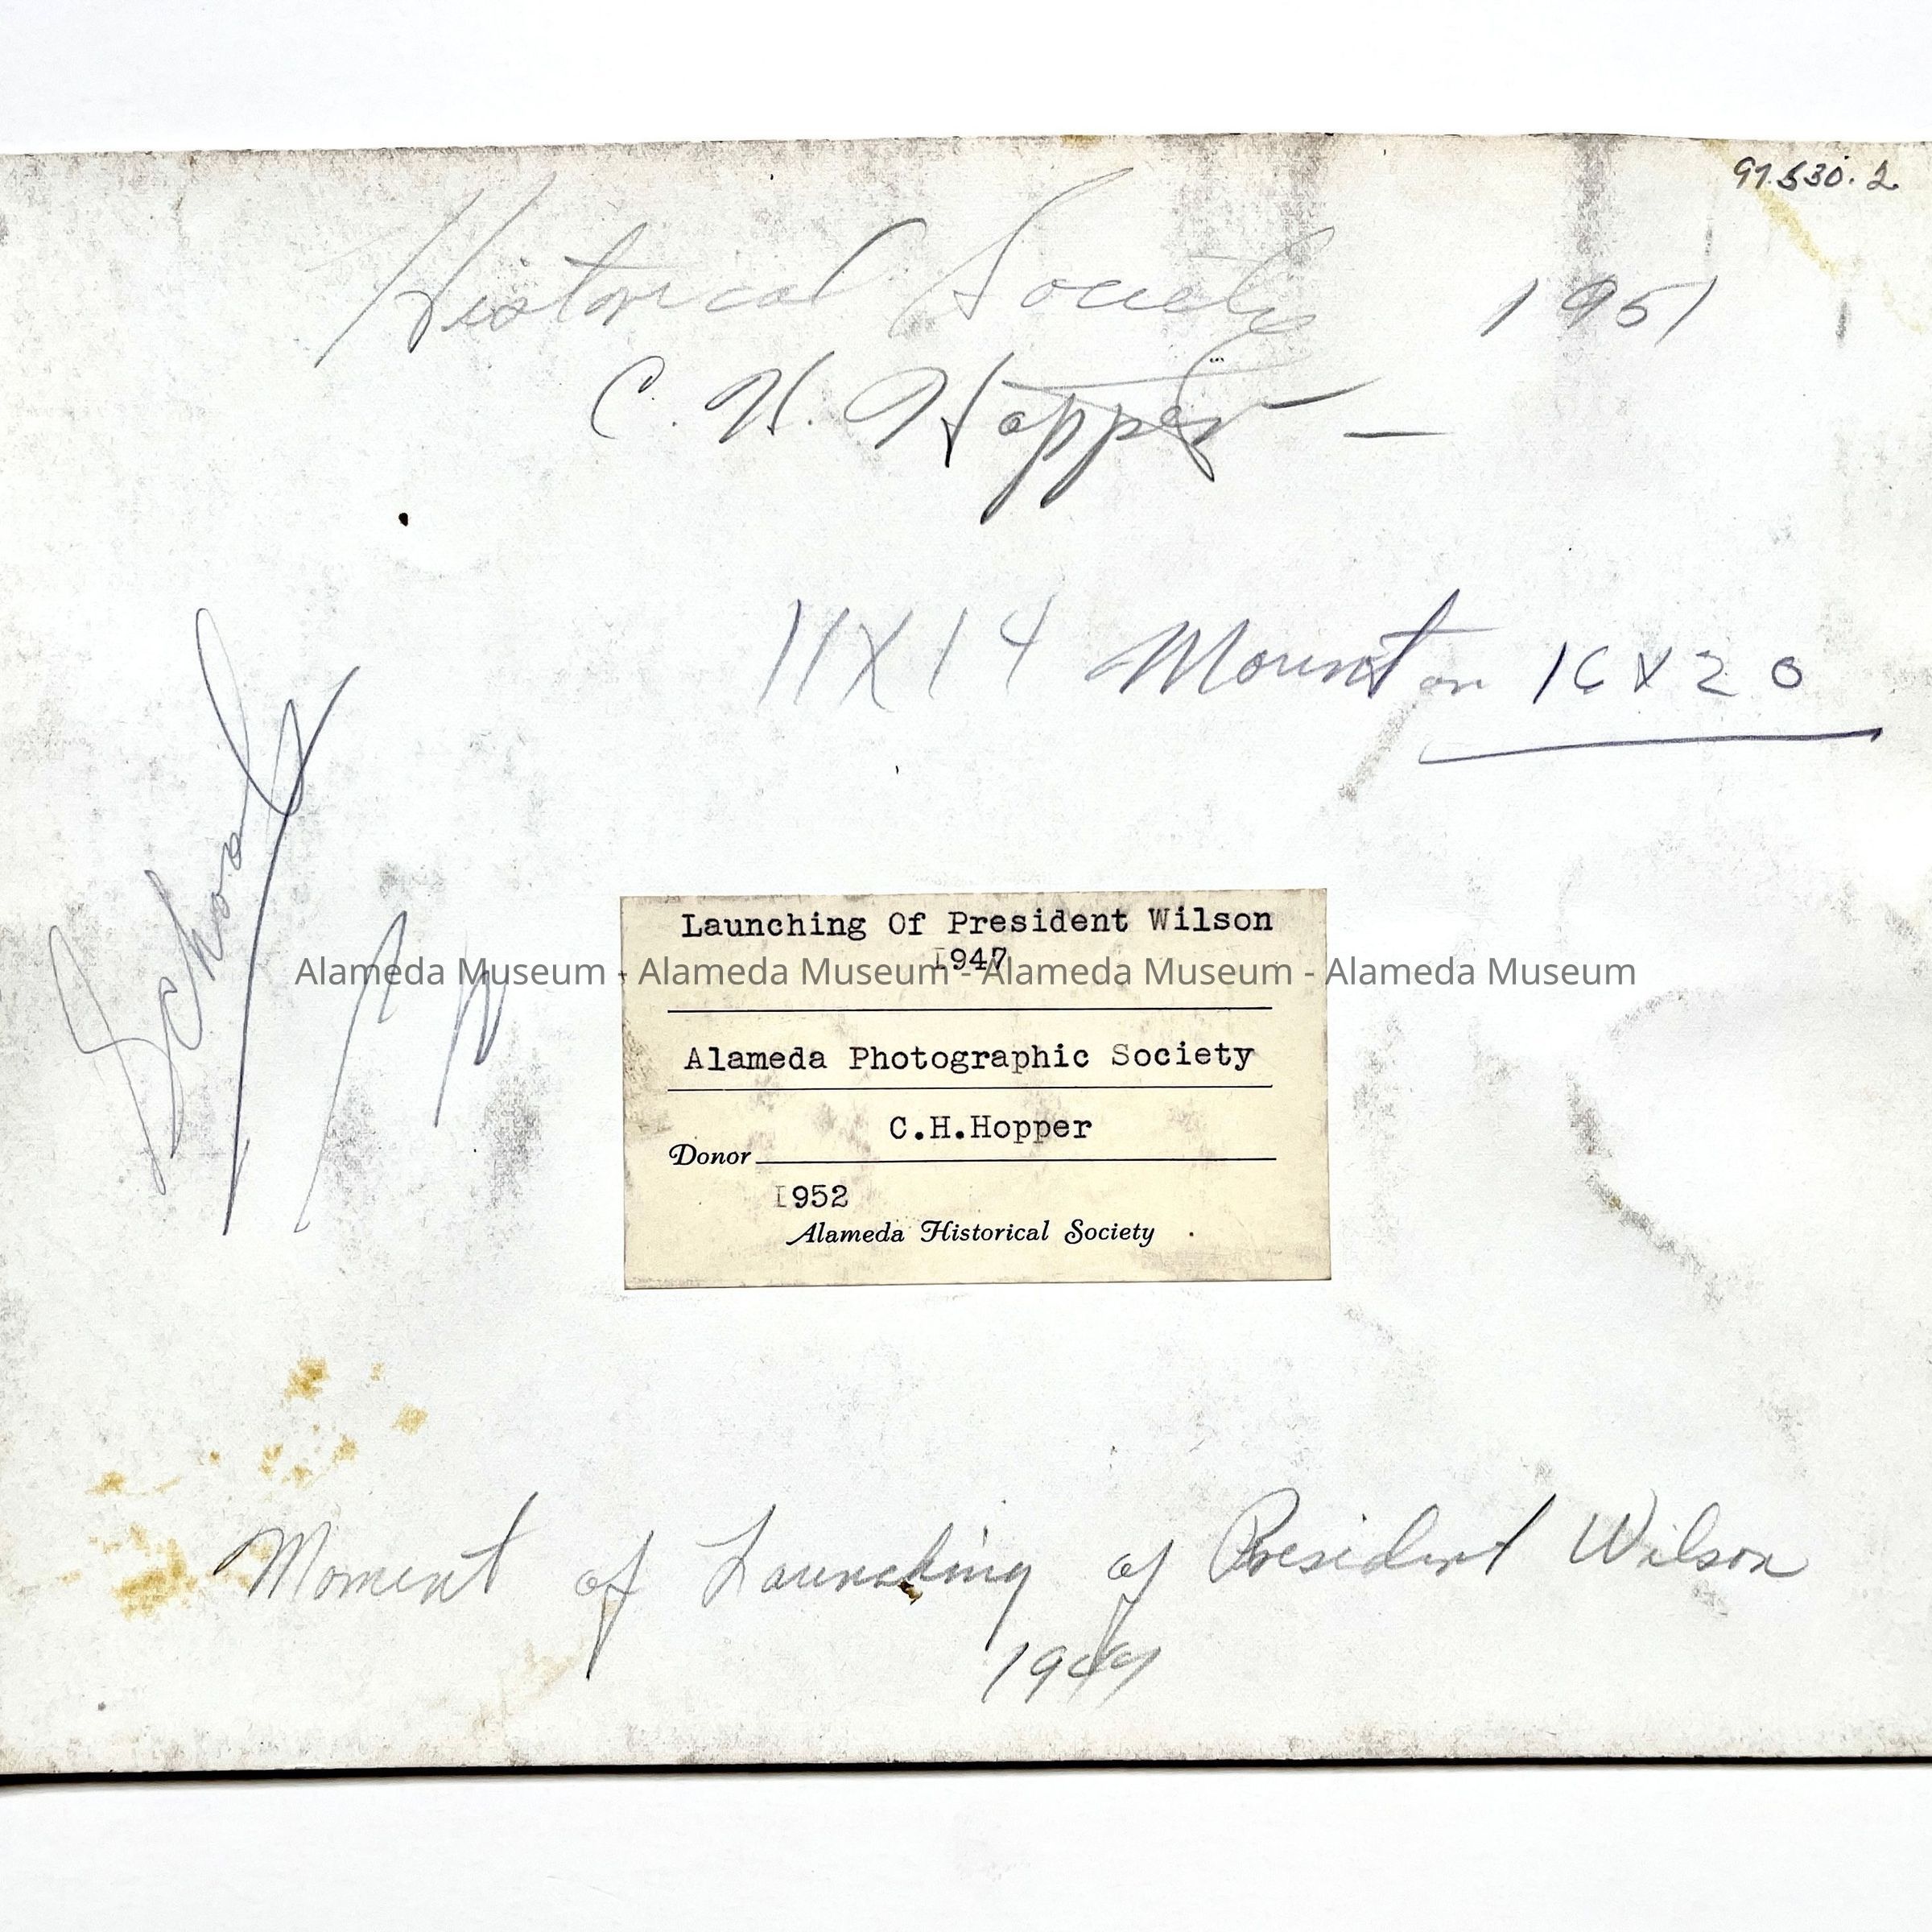 97.530.2
Historical Society 1951
C. H. Hopper —
11X14 Mount on 16X20
Launching Of President Wilson
1947
Alameda Museum - Alameda Museum - Alameda Museum - Alameda Museum
Alameda Photographic Society
C.H.Hopper
Donor
1952
Alameda Historical Society
Moment of Launching of President Wilson